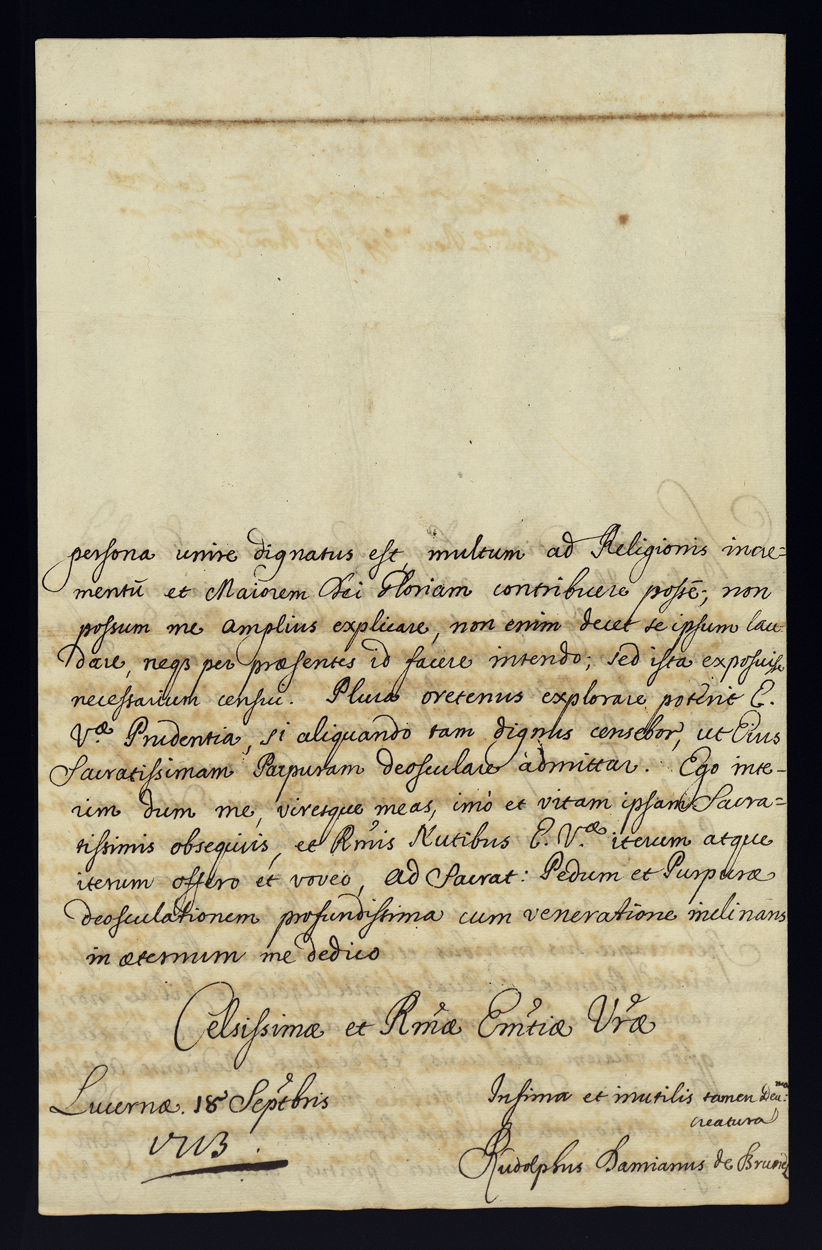 persona unire dignatus est, multum ad Religionis incre=
mentū et Maiorem Dei Gloriam contribuere posse; non
possum me amplius explicare, non enim decet se ipsum lau
dare, neqз per præsentes id facere intendo; sed ista exposuisse
necessarium censui. Plura oretenus explorare poterit E.
V.æ Prudentia, si aliquando tam dignus censebor, ut Eius
Sacratissimam Purpuram deosculare admittar. Ego inte-
rim dum me, viresque meas, imò et vitam ipsam Sacra=
tissimis obsequiis, et Rmis Nutibus E. V.æ iterum atque
iterum offero et voveo, ad Sacrat: Pedum et Purpuræ
deosculationem profundissima cum veneratione inclinans
in æternum me dedico
Celsissimæ et Rmæ Emtiæ Vræ
Lucernæ. 18 Septbris
1713.
Infima et inutilis tamen Deu:ma
creatura
Rudolphus Damianus de